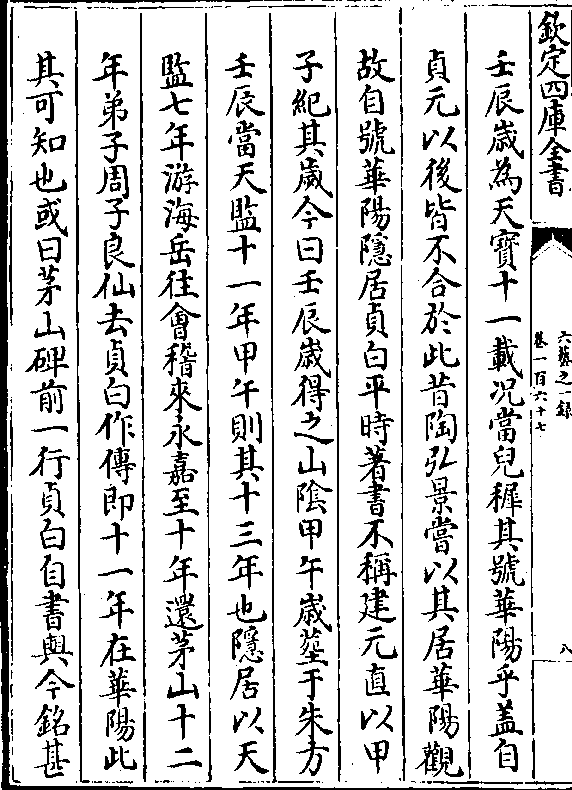 欽定四庫全書
六藝之一錄
卷一百六十七
八
壬辰歲為天寶十一載况當兒稺其號華陽乎盖自
貞元以後皆不合於此昔陶弘景嘗以其居華陽觀
故自號華陽隱居貞白平時著書不稱建元直以甲
子紀其歲今曰壬辰歲得之山陰甲午歲塟于朱方
壬辰當天監十一年甲午則其十三年也隱居以天
監七年游海岳往會稽來永嘉至十年還茅山十二
年弟子周子良仙去貞白作傳即十一年在華陽此
其可知也或曰茅山碑前一行貞白自書與今銘甚